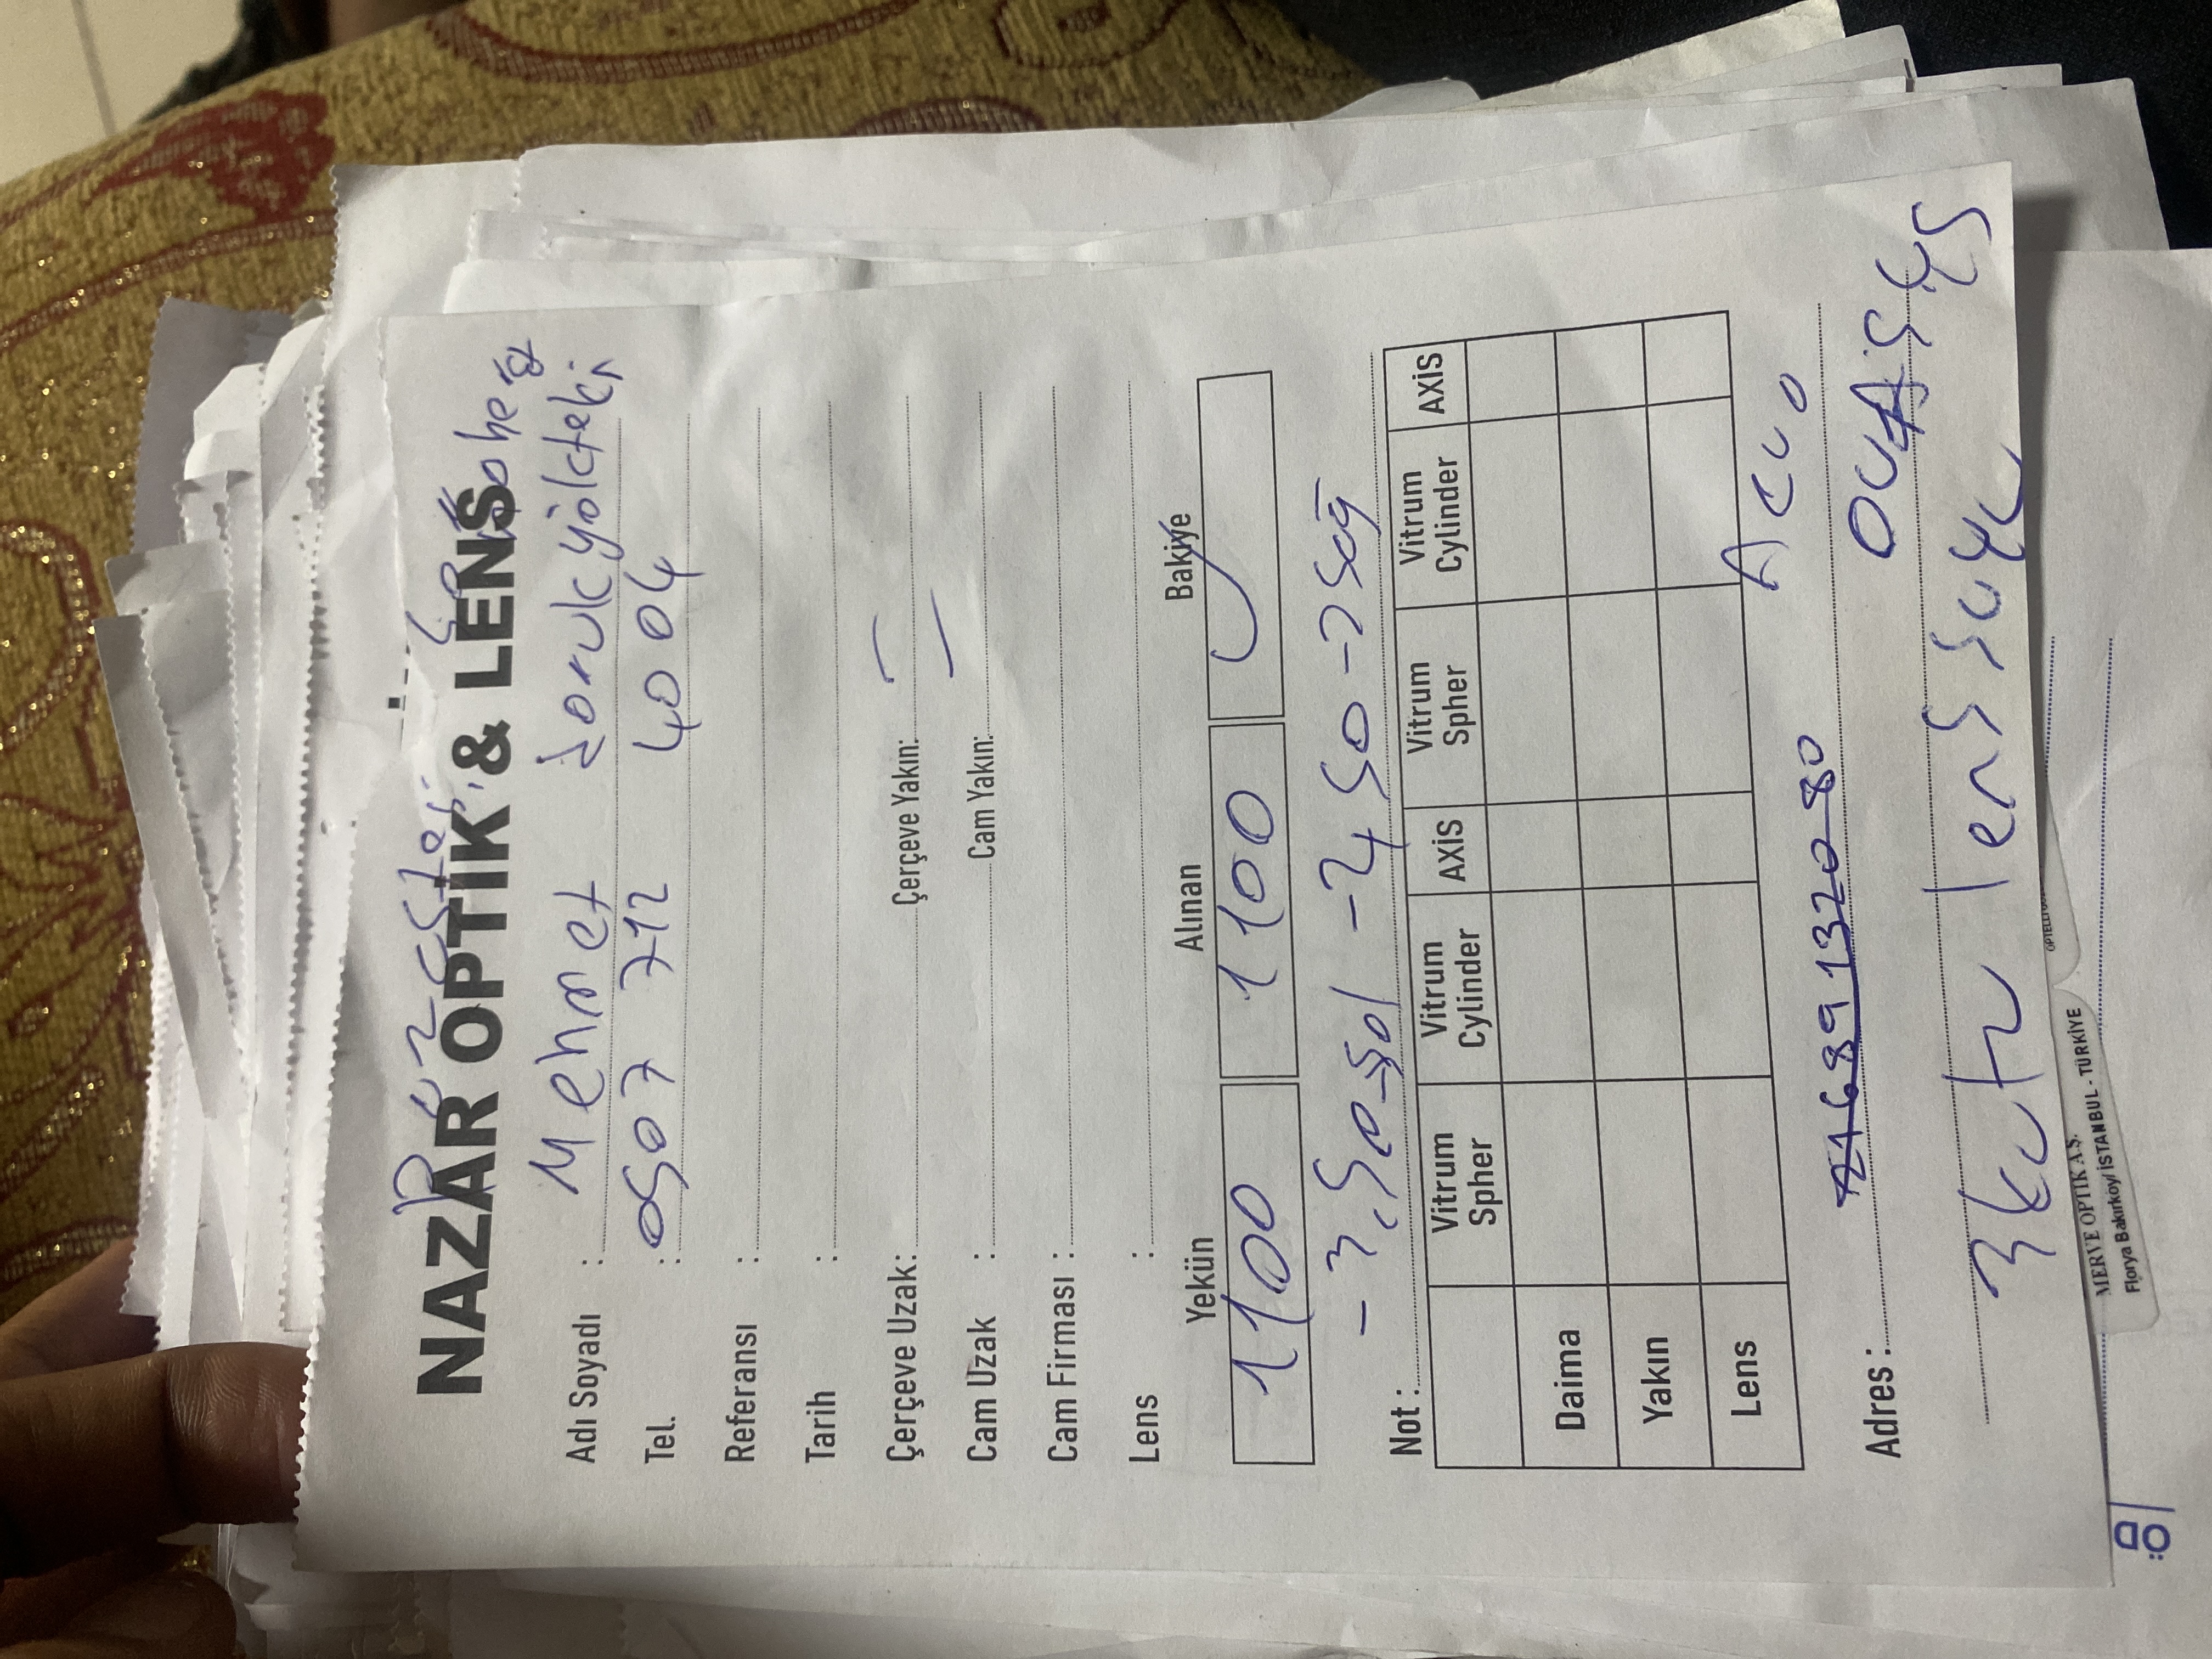 Pazartesi
NAZAR OPTİK & LENS
Adı Soyadı : Mehmet Dorukyölcteki
Tel. : 0507 712 4004
Referansı :
Tarih :
Çerçeve Uzak: Çerçeve Yakın:
Cam Uzak : Cam Yakın:
Cam Firması :
Lens :
Yekün Alınan Bakiye
1100 1100
Not : -3,50 sol -2,50 -2 sağ
Vitrum Spher Vitrum Cylinder AXİS Vitrum Spher Vitrum Cylinder AXİS
Daima
Yakın
Lens
Acuo
Adres : 21689132080
OUASYS
3 kutu lens suyu
MERVE OPTİK A.Ş.
Florya Bakırköy/ İSTANBUL - TÜRKİYE
ÖD